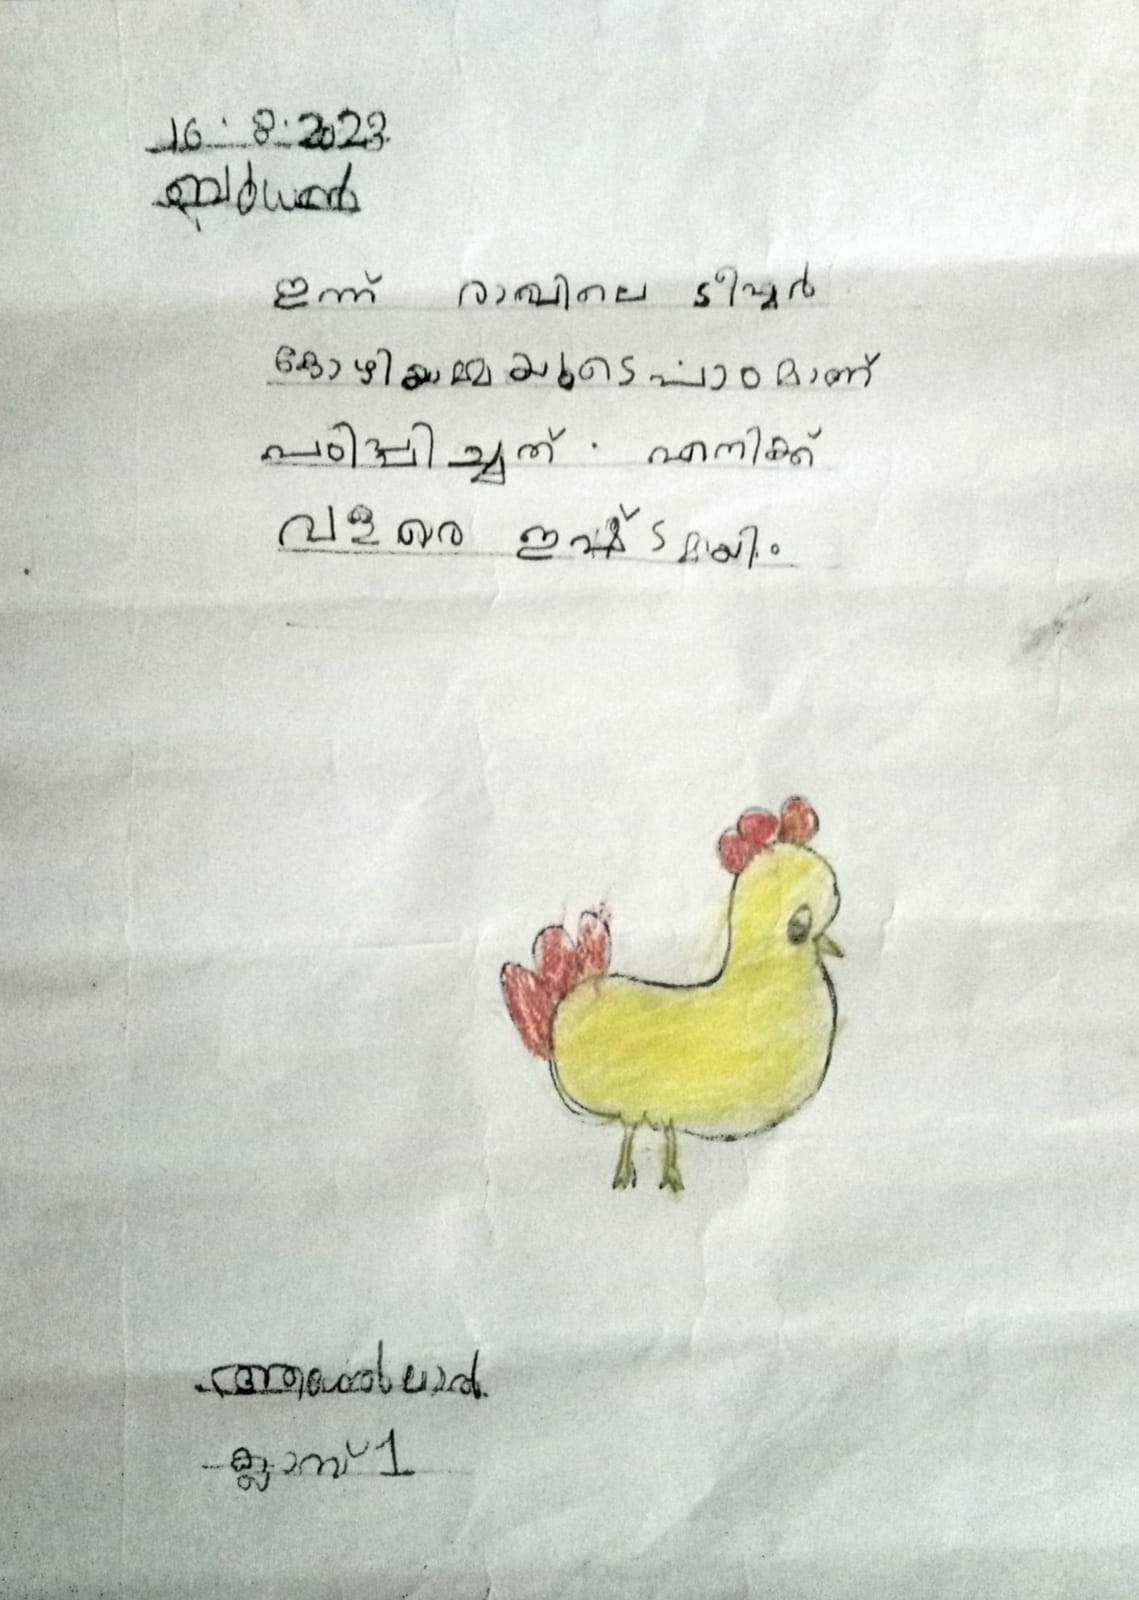 16.8.2023
ബുധൻ
ഇന്ന് രാവിലെ ടീച്ചർ
കോഴിയമ്മയുടെ പാഠമാണ്
പഠിപ്പിച്ചത്. എനിക്ക്
വളരെ ഇഷ്ടമായി.
ക്ലാസ് 1